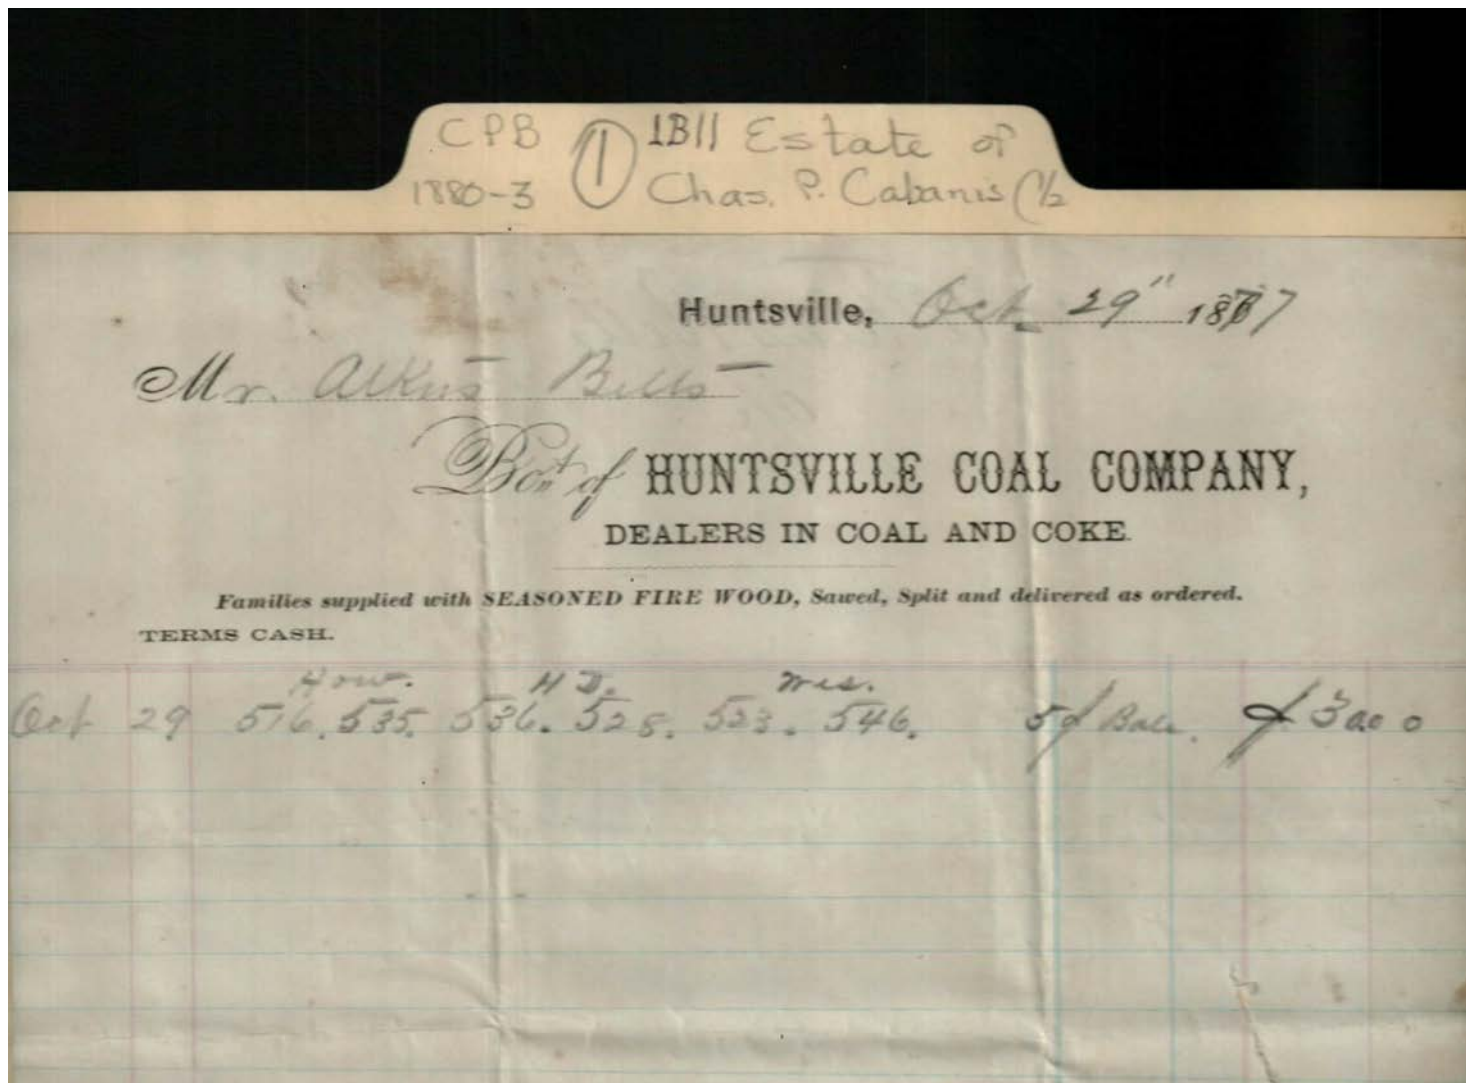 CPB 1 1B11 Estate of
1880-3 Chas. P. Cabanis (1/2
Huntsville, Oct. 29" 1877
Mr.
Bo't of HUNTSVILLE COAL COMPANY,
DEALERS IN COAL AND COKE.
Families supplied with SEASONED FIRE WOOD, Sawed, Split and delivered as ordered.
TERMS CASH.
H D.
Oct 29 516. 535. 536. 528. 523. 546.